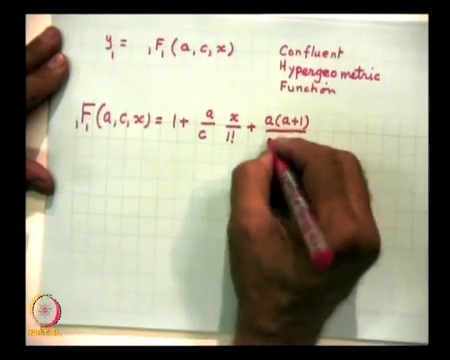 y₁ = ₁F₁ (a, c, x)
Confluent
Hypergeometric
Function
₁F₁(a,c,x) = 1 + a/c x/1! + a(a+1)/